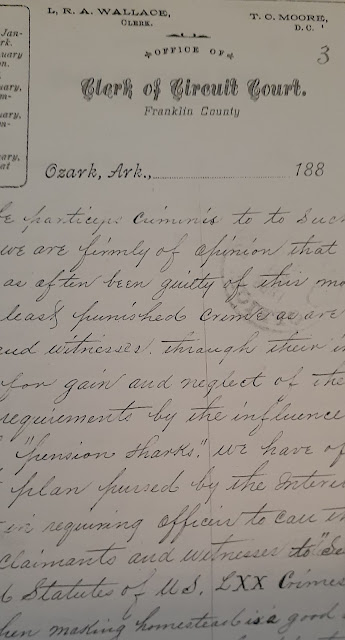 L. R. A. WALLACE,
CLERK.
T. C. MOORE,
D. C.
OFFICE OF
3
Clerk of Circuit Court.
Franklin County
Ozark, Ark., 188
Jan-
rk.
uary
on.
uary,
m-
uary,
m-
uary,
at
be particeps Criminis to to such
we are firmly of opinion that
as often been guilty of this mo
least punished Crime as are
and witnesses. through their
for gain and neglect of the
requirements by the influence
"pension sharks." we have of
plan pursed by the Interi
in requiring officer to cau
Claimants and witnesses to "Se
Statutes of U.S. LXX Crimes
hen making homestead is a good